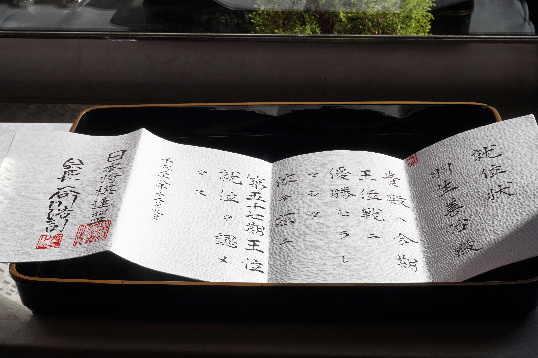 就位状
羽生善治殿
貴殿ハ今期
王位戦ニ
優勝セラレ
マシタ
依テ茲ニ
第五十七期王位
就位ヲ認メ
マス
日本将棋連盟
会長 谷川浩司